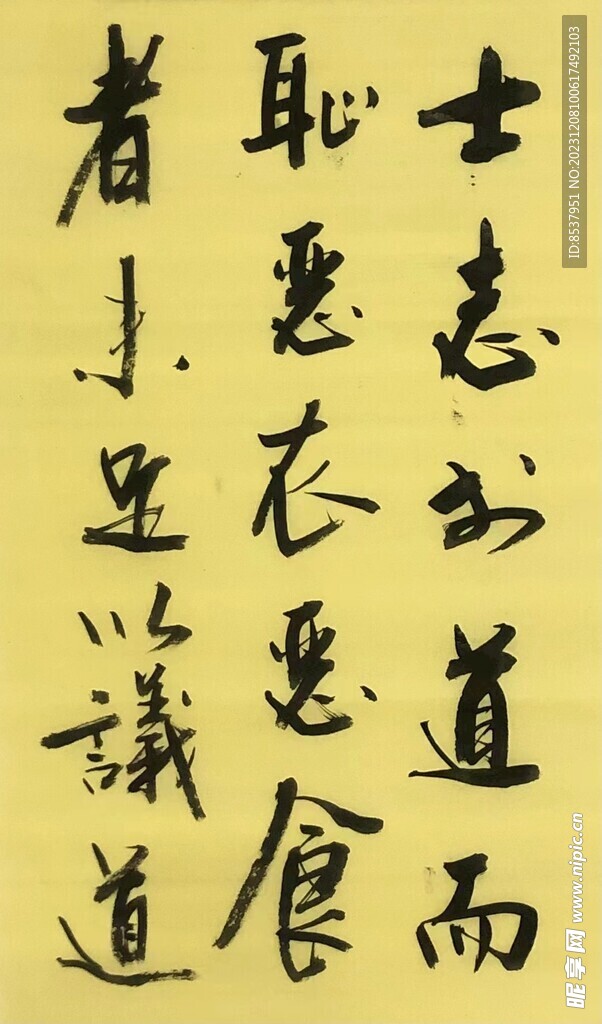 士志於道而
恥惡衣惡食
者未足以議道
ID:8537951 NO:20231208100617492103
昵享网 www.nipic.cn